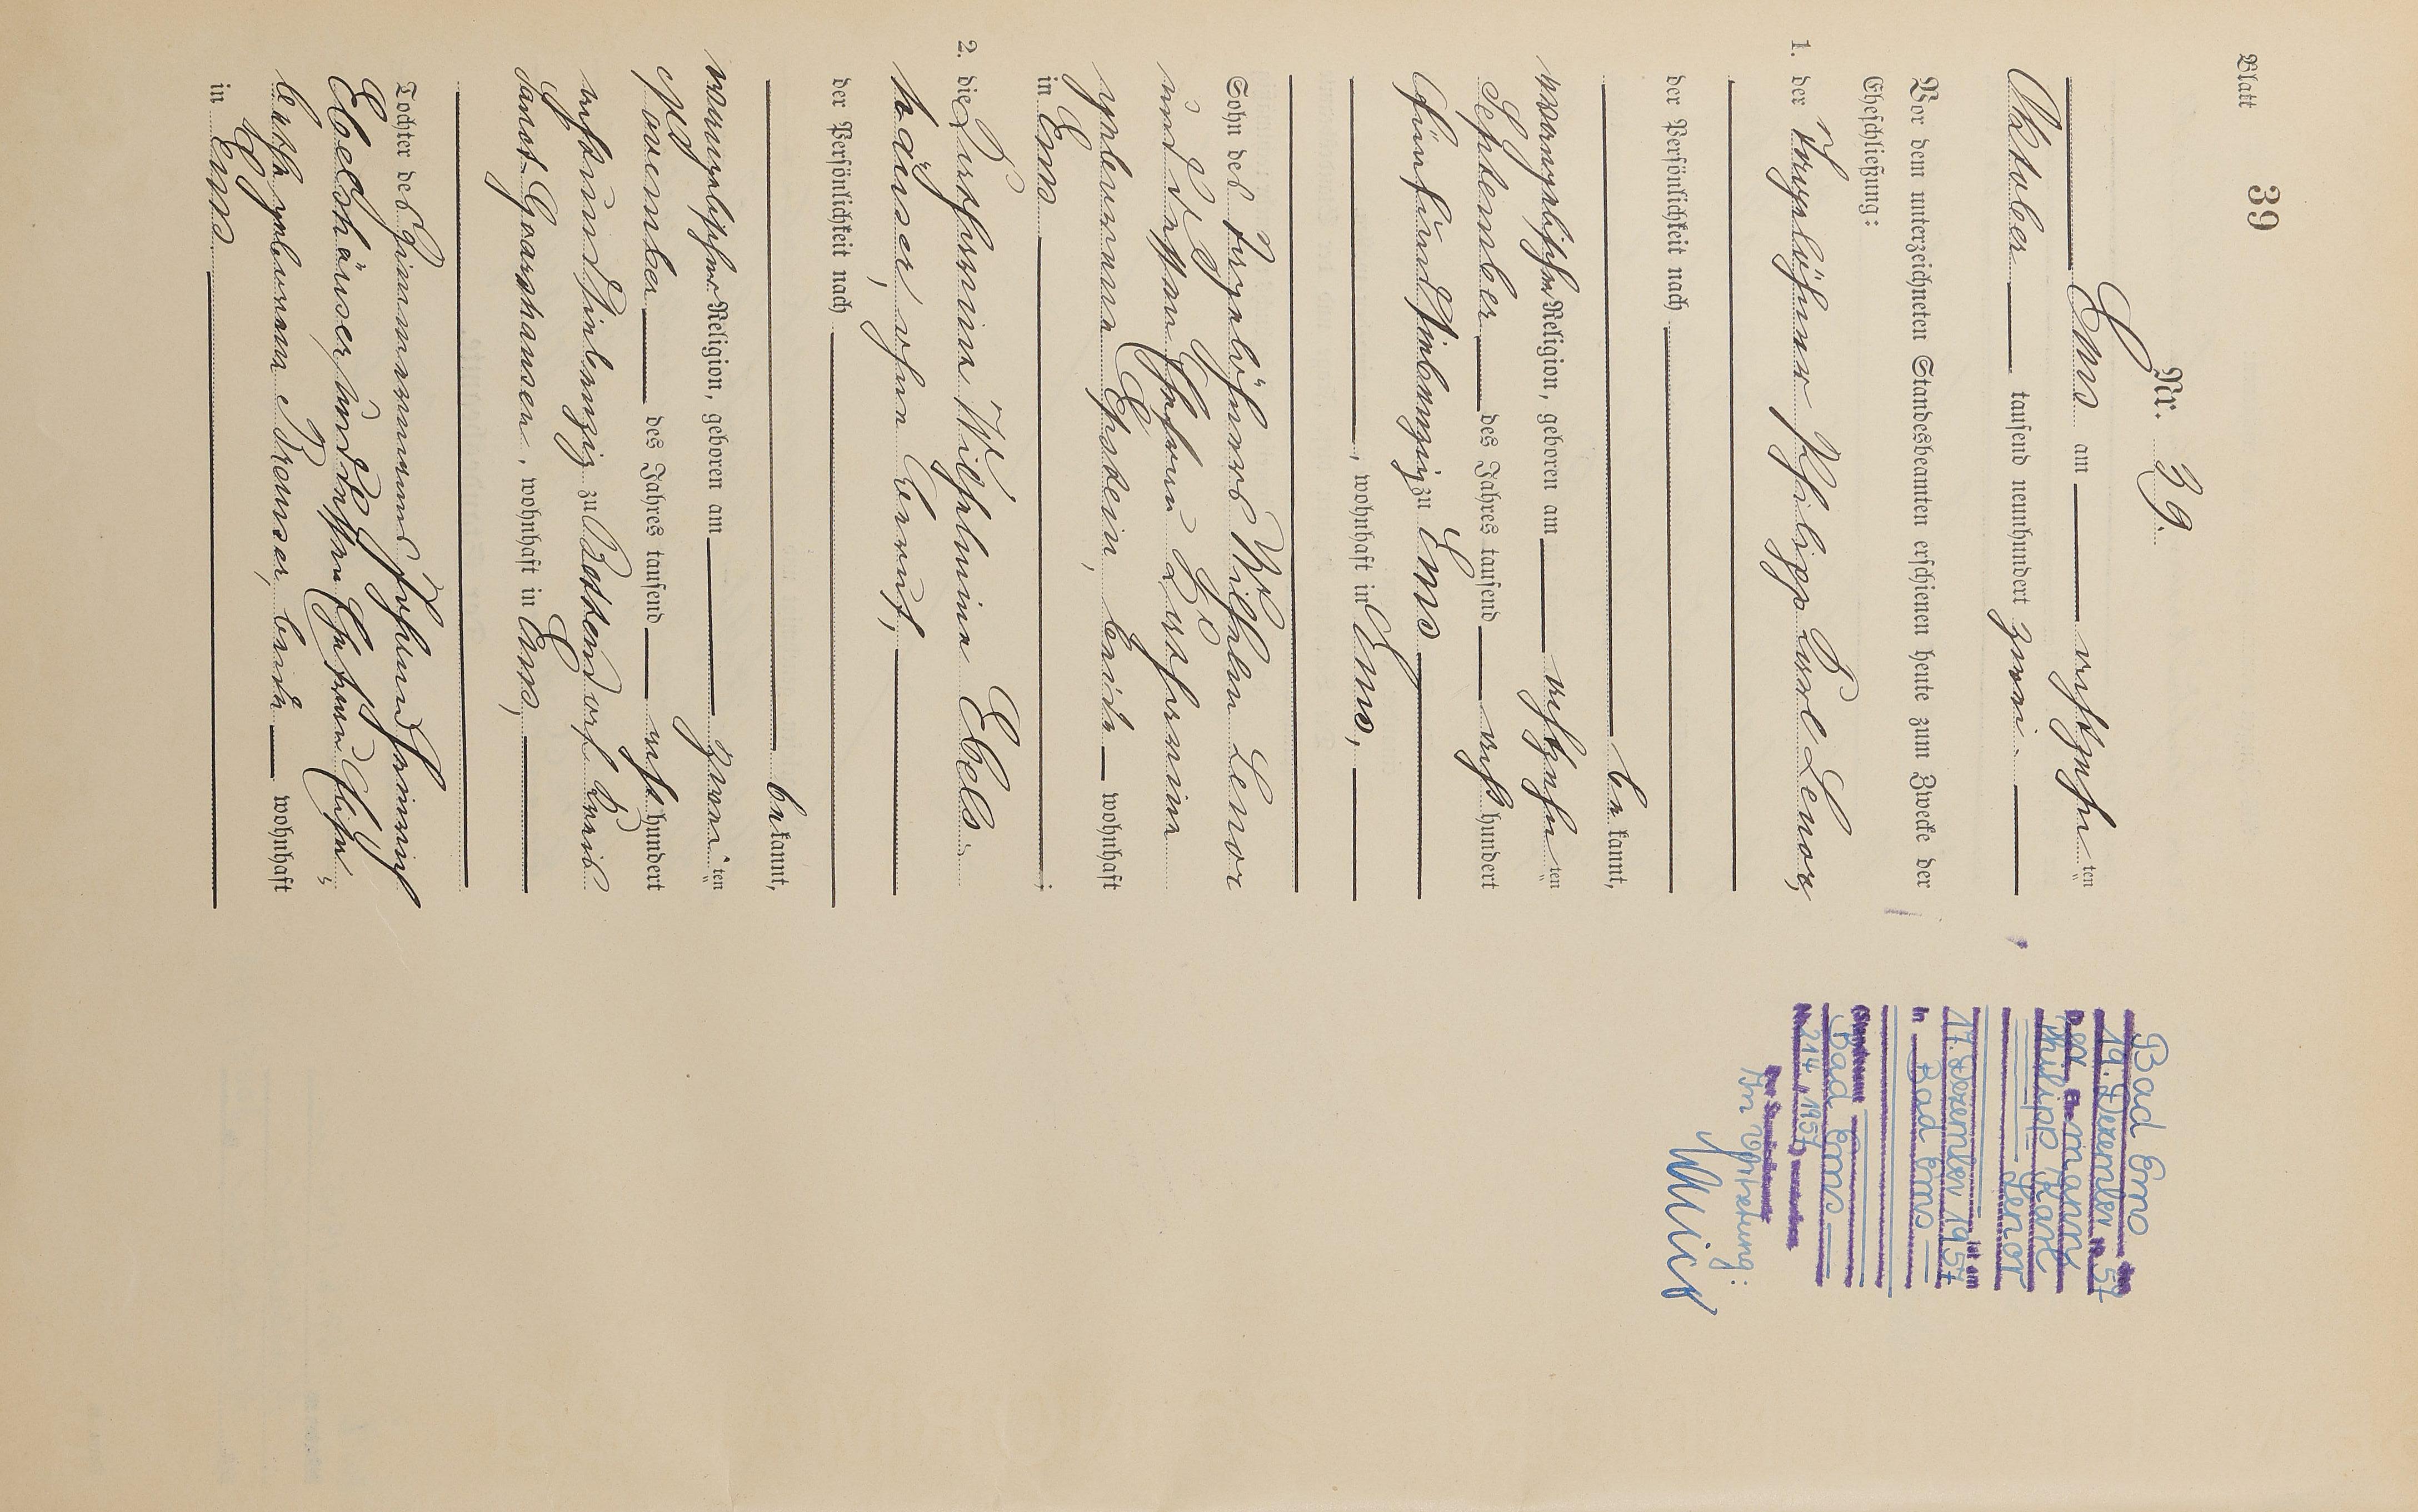 Blatt 39
Nr. 39.
Ems am achtzehn ten
Oktober tausend neunhundert zwei.
Vor dem unterzeichneten Standesbeamten erschienen heute zum Zwecke der
Eheschließung:
1. der Tagelöhner Philipp Karl Lenor,
der Persönlichkeit nach
be kannt,
evangelischer Religion, geboren am achtzehn ten
September des Jahres tausend acht hundert
fünfundsiebenzig zu Ems
, wohnhaft in Ems,
Sohn des Tagelöhners Wilhelm Lenor
und dessen Ehefrau Katharina
geborenene Epstein, beide wohnhaft
in Ems ;
2. die Katharina Wilhelmine Ebels-
häuser, ohne Beruf,
der Persönlichkeit nach
bekannt,
evangelischer Religion, geboren am zwei ten
November des Jahres tausend acht hundert
achtundsiebenzig zu Bettendorf Kreis
Sanct Goarshausen, wohnhaft in Ems,
Tochter des Zimmermanns Johann Heinrich
Ebelshäuser und dessen Ehefrau
geborenen Brouser, beide wohnhaft
in Ems
Bad Ems den
19. Dezember 19 57
Der Ehe mann
Philipp Karl
Lenor
ist am
17. Dezember 1957
in Bad Ems
(Standesamt
Bad Ems
Nr. 214/1957) verstorben
Der Standesbeamte
In Vertretung: